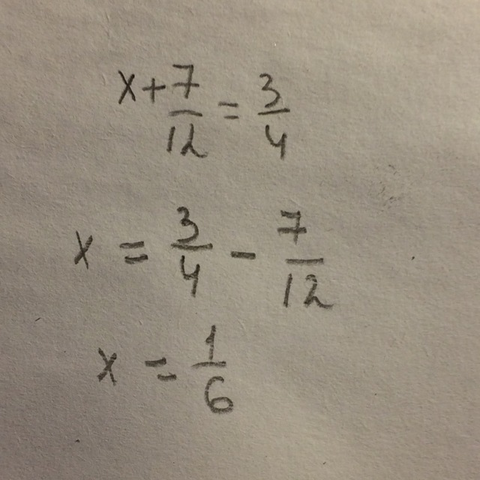 x + 7/12 = 3/4
x = 3/4 - 7/12
x = 1/6